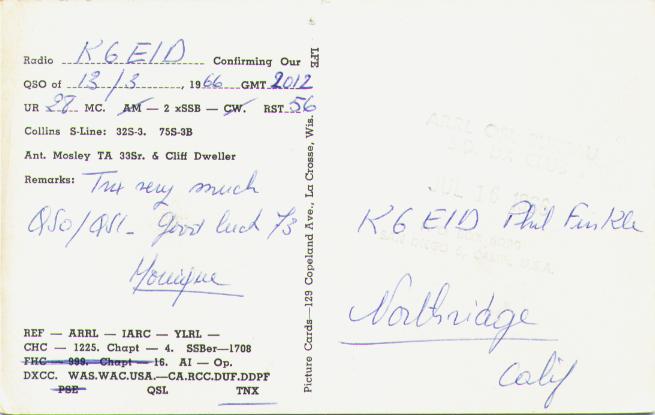 Radio K6EID Confirming Our
QSO of 13/3, 1966 GMT 2012
UR 28 MC. AM — 2 xSSB — CW. RST 56
Collins S-Line: 32S-3. 75S-3B
Ant. Mosley TA 33Sr. & Cliff Dweller
Remarks: Tnx very much
QSO/QSL - Good luck 73
Monique
REF — ARRL — IARC — YLRL —
CHC — 1225. Chapt — 4. SSBer—1708
FHC — 999. Chapt — 16. AI — Op.
DXCC. WAS.WAC.USA.—CA.RCC.DUF.DDPF
PSE QSL TNX
Picture Cards—129 Copeland Ave., La Crosse, Wis. LFE
ARRL QSL BUREAU
JUL 16
K6EID Phil Finkle
SAN DIEGO CALIF. U.S.A.
Northridge
Calif